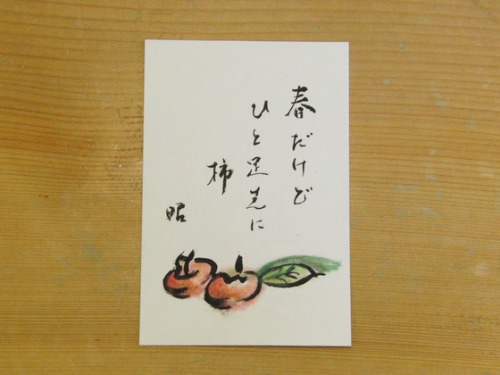 春だけど
ひと足先に
柿
昭